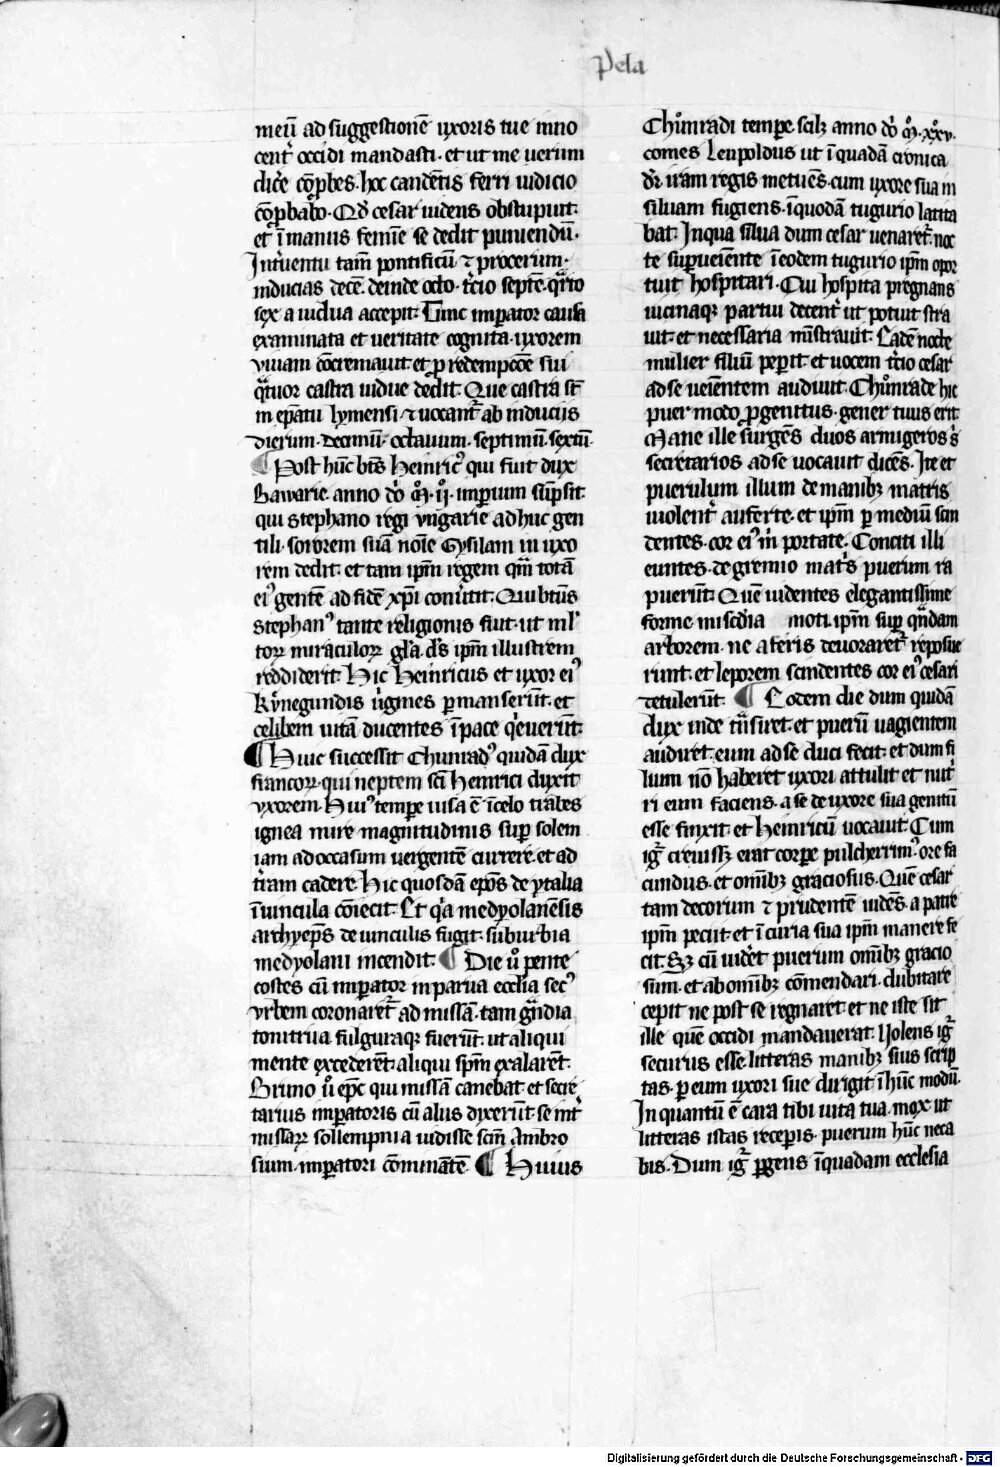 Pela
meū ad suggestionē uxoris tue inno
cent̾ occidi mandasti · et ut me uerum
dice͛ cōp̱bes · hoc candētis ferri iudicio
cōp̱babo · Qd̄ cesar uidens obstupuit ·
et ī manus femīe se dedit puniendū ·
Int͛uentu tam̄ pontificū ⁊ procerum ·
inducias decē deinde octo · t͛cio septē · qͣrto
sex a uidua accepit · Tunc imꝑator causa
examinata et ueritate cognita · uxorem
viuam cōcremauit · et ꝓ redempcōe sui
qͣtuor castra uidue dedit · Que castra st̄
in ep̄atu lymensi ⁊ uocant̾ ab induciis
dierum · decimū · octauum · septimū · sextū ·
¶ Post hūc bt̄s Heinricꝰ qui fuit dux
Bawarie · anno dō M̊ · II̊ · imꝑium sūpsit ·
qui stephano regi vngarie adhuc gen
tili · sororem suā noīe Gysilam in uxo
rem dedit · et tam ip̄m regem qm̄ totā
eiꝰ gentē ad fidē xp̄i conu͛tit · Qui bt̄us
stephanꝰ tante religionis fuit · ut ml̾
toꝝ miraculoꝝ gl̄a d̄s ip̄m illustrem
reddiderit · Hic Heinricus et uxor eiꝰ
Kynegundis u͛gines ꝑmanserūt · et
celibem uitā ducentes ī pace q͛euerūt ·
¶ Huic successit Chunradꝰ quidā dux
francoꝝ · qui neptem sc̄i Heinrici duxit
vxorem · Huiꝰ tempe uisa ē ī celo trabes
ignea mire magnitudinis suꝑ solem
iam ad occasum uergentē currere · et ad
t͛ram cadere · Hic quosdā ep̄os de ytalia
ī uincula cōiecit · Et qͥa medyolanēsis
archyep̄s de uinculis fugit · suburbia
medyolani incendit · ¶ Die u̇̊ pente
costes cū imꝑator in parua ecclīa secꝰ
vrbem coronaret̾ ad missā · tam gͣndia
tonitrua fulguraqꝫ fuerūt · ut aliqui
mente excederēt · aliqui sp̄m exalarēt ·
Bruno u̇̊ ep̄c qui missā canebat · et secre
tarius imꝑatoris cū aliis dixerūt se int̾
missaꝝ sollempnia uidisse scm̄ Ambro
sium · imꝑatori cōminātē · ¶ Huius
Chůnradi tempe · scilꝫ anno dō M̊ · xxv̊ ·
comes Leupoldus ut ī quadā cronica
dr̄ iram regis metuēs · cum uxore sua in
siluam fugiens · ī quodā tugurio latita
bat · In qua silua dum cesar uenaret̾ · noc
te suꝑueīente ī eodem tugurio ip̄m opor
tuit hospitari · Cui hospita pregnans
uicinaqꝫ partui decent̾ ut potuit stra
uit · et necessaria mīstrauit · Eadē nocte
mulier filiū peꝑit · et uocem t͛cio cesar
ad se ueīentem audiuit · Chůnrade hic
puer modo ꝓgenitus · gener tuus erit ·
Mane ille surgēs duos armigeros s͛
secretarios ad se uocauit dicēs · Ite et
puerulum illum de manibꝫ matris
uiolent̾ auferte · et ip̄m ꝑ mediū scin
dentes · cor eiꝰ m̄ portate · Conciti illi
euntes · de gremio mat͛s puerum ra
puerūt · Quē uidentes elegantissime
forme misc̄dia moti ip̄m suꝑ qͣndam
arborem · ne a feris deuoraret̾ reposue
runt · et leporem scindentes cor eiꝰ cesari
detulerūt · ¶ Eodem die dum quidā
dux inde t̾nsiret · et puerū uagientem
audiret · eum ad se duci fecit · et dum fi
lium nō haberet uxori attulit et nut͛
ri eum faciens · a se de uxore sua genitū
esse finxit · et Heinricū uocauit · Cum
igͬ creuissꝫ erat corꝑe pulcherrimꝰ · ore fa
cundus · et om̄ibꝫ graciosus · Quē cesar
tam decorum ⁊ prudentē uidēs · a patre
ip̄m peciit · et ī curia sua ip̄m manere fe
cit · Sꝫ cū uid͛et puerum om̄ibꝫ gracio
sum · et ab om̄ibꝫ cōmendari · dubitare
cepit ne post se regnaret · et ne iste sit
ille quē occidi mandauerat · Uolens igͬ
securus esse · litteras manibꝫ suis scrip
tas · ꝑ eum uxori sue dirigit ī hūc modū ·
In quantū ē cara tibi uita tua · mox ut
litteras istas receperis · puerum hūc neca
bis · Dum igͬ ꝑgens ī quadam ecclesia
Digitalisierung gefördert durch die Deutsche Forschungsgemeinschaft - DFG